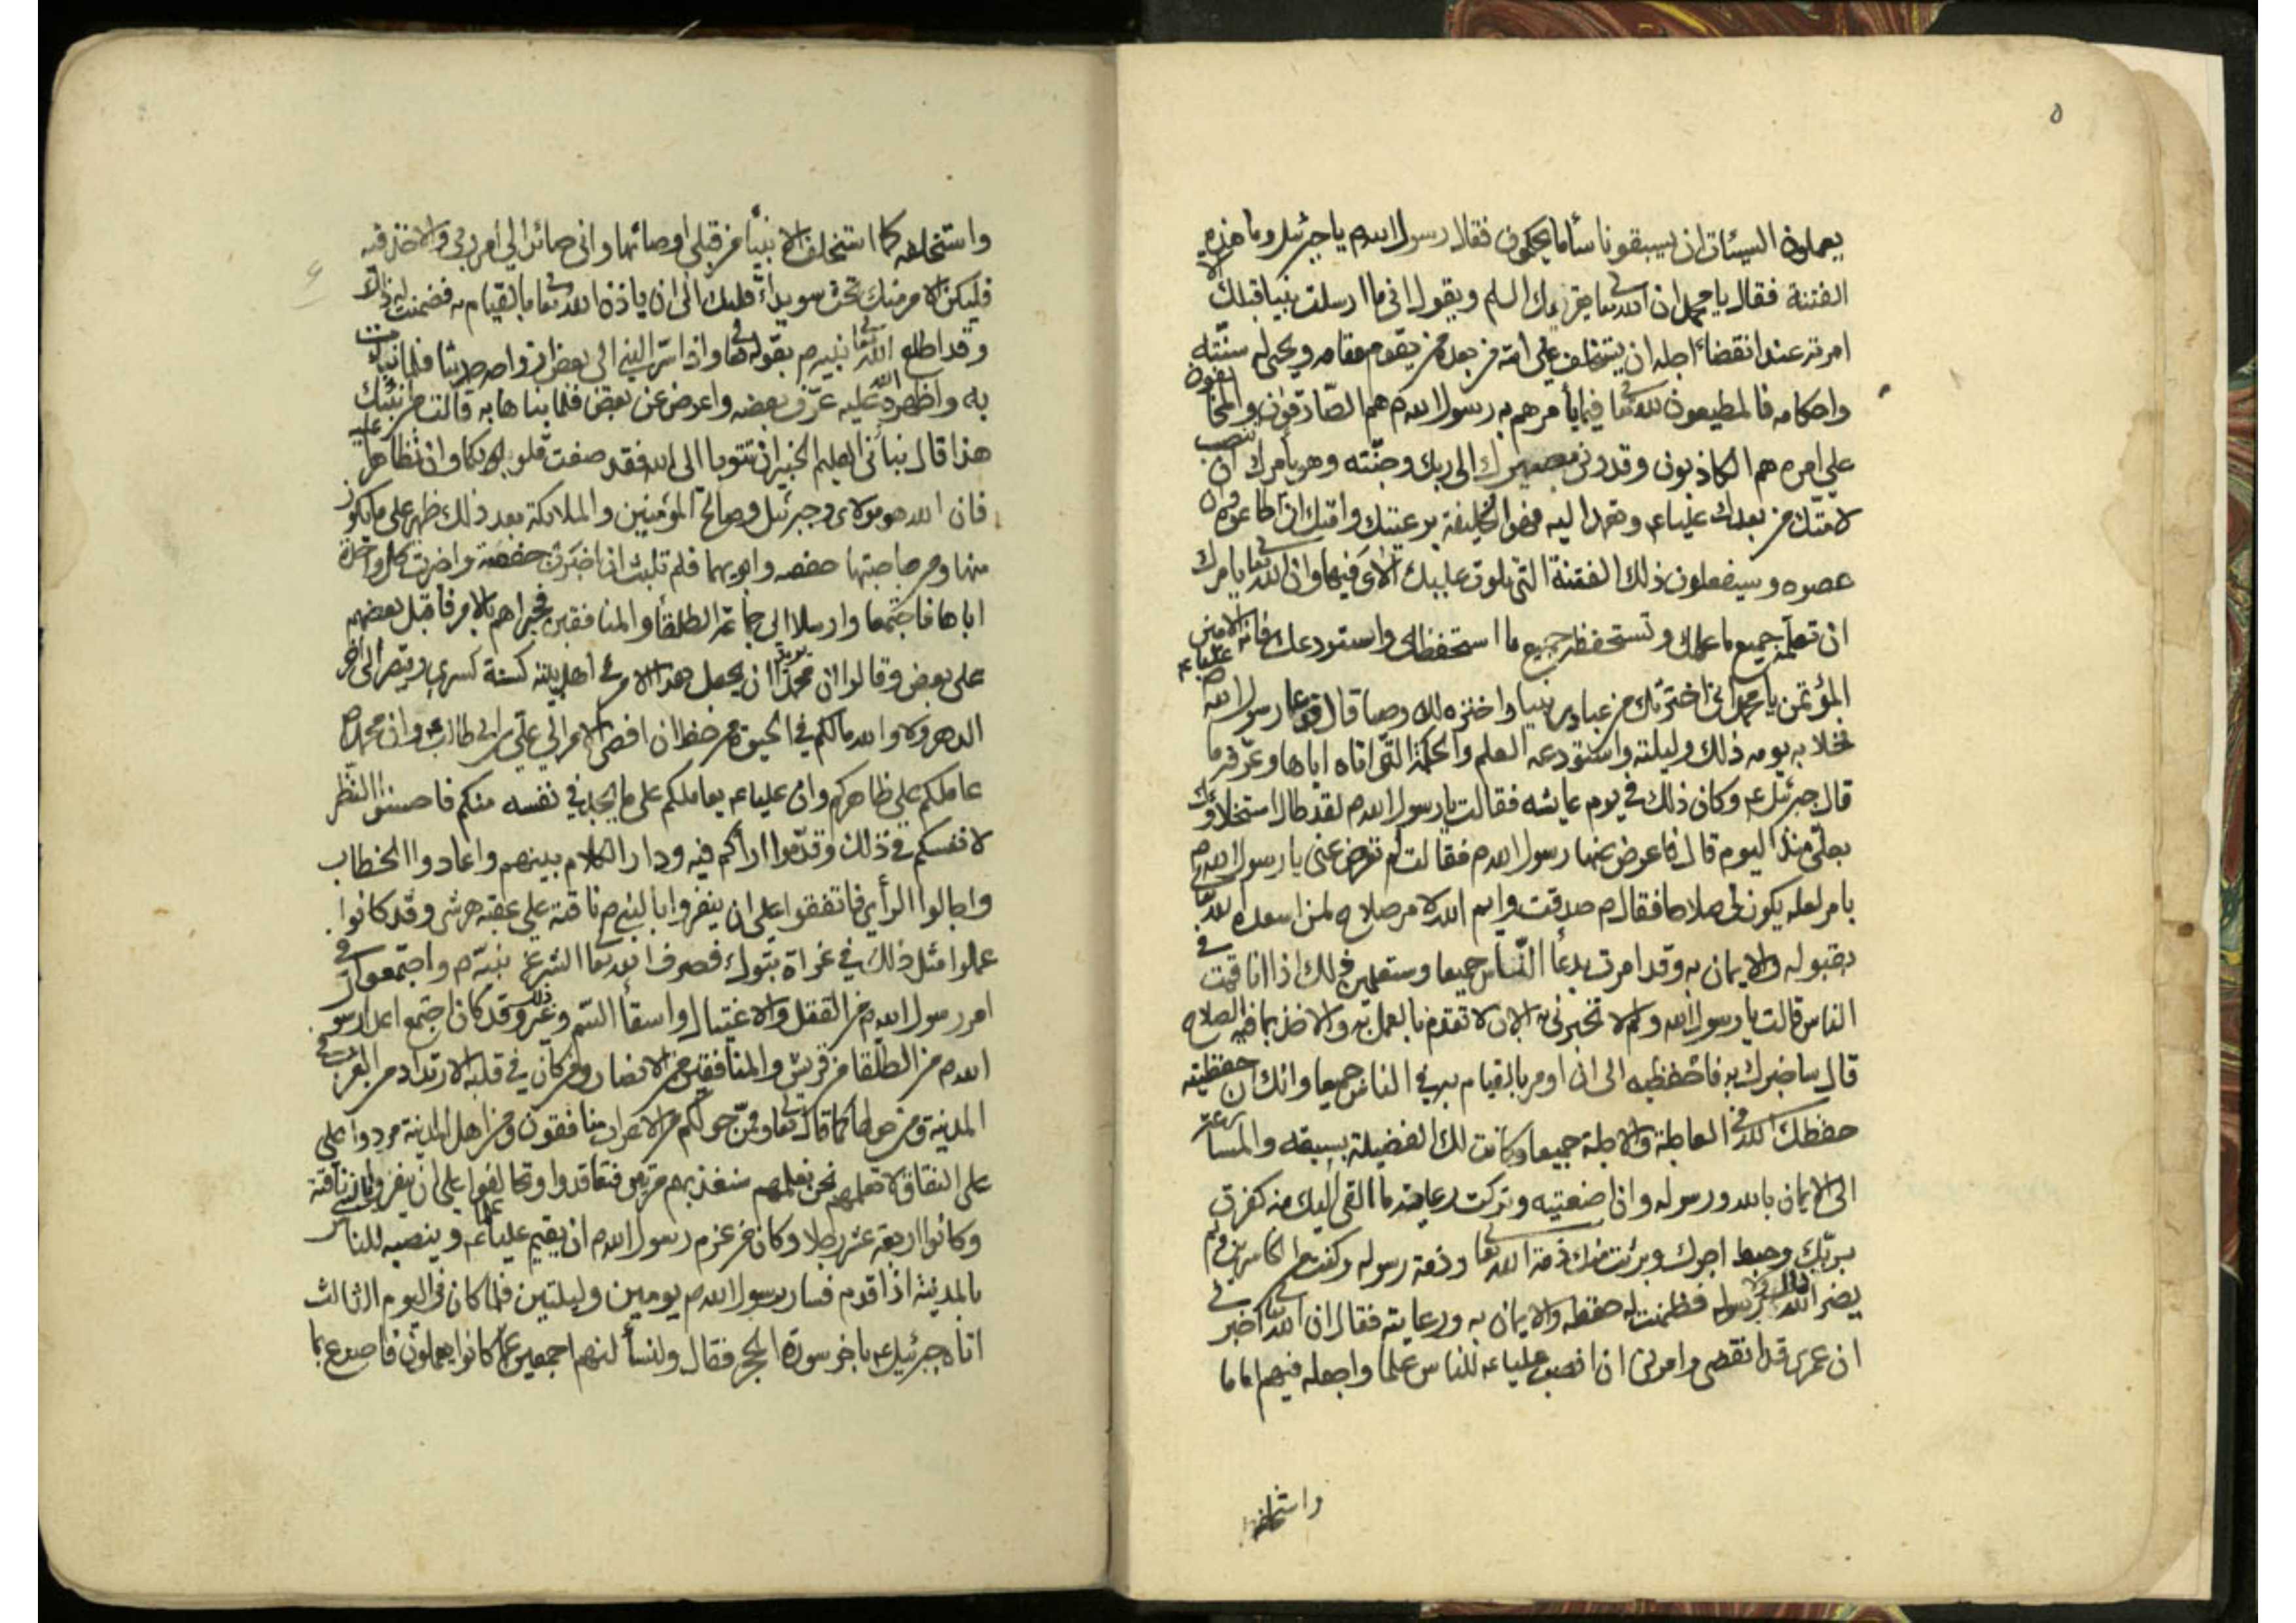 ٥
يعملون السيئات ان يسبقونا ساء ما يحكمون فقال رسول الله ص يا جبرئيل وما هذه
الفتنة فقال يا محمد ان الله تعا يقرئك السلم ويقول اني ما ارسلت نبيا قبلك الا
امرته عند انقضاء اجله ان يستخلف على امته من بعده من يقوم مقامه ويحيى له سنته
واحكامه فالمطيعون لله تعا فيما يأمرهم به رسول الله ص هم الصادقون والمخالفون
على امره هم الكاذبون وقد دنى مصيرك الى ربك وجنته وهو يأمرك ان تنصب
لامتك من بعدك عليا ع وتعهد اليه فهو الخليفة برعيتك وامتك ان اطاعوه وان
عصوه وسيفعلون ذلك الفتنة التي تلوت عليك الآى فيها وان الله تعا يامرك
ان تعلمه جميع ما علمك وتستحفظه جميع ما استحفظك واستودعك فانه الامين
المؤتمن يا محمد اني اخترتك من عبادي نبيا واخترته لك وصيا قال فدعا رسول الله ص عليا ع
فخلا به يومه ذلك وليلته واستودعه العلم والحكمة التي اتاه اياها وعرفه ما
قال جبرئيل ع وكان ذلك في يوم عايشه فقالت يا رسول الله ص لقد طال استخلاؤك
بعلي منذ اليوم قال فاعرض عنها رسول الله ص فقالت لم تعرض عني يا رسول الله ص
بامر لعله يكون لي صلاحا فقال ص صدقت وايم الله لامر صلاح لمن اسعده الله تعا
بقبوله والايمان به وقد امرت بدعاء الناس جميعا وستعلمين ذلك اذا انا قمت في
الناس قالت يا رسول الله ولم لا تخبرني به الان لاتقدم بالعمل به والاخذ بما فيه الصلاح
قال ساخبرك به فاحفظيه الى ان اومر بالقيام به في الناس جميعا وانك ان حفظتيه
حفظك الله في العاجلة والاجلة جميعا وكانت لك الفضيلة بسبقه والمسارعة
الى الايمان بالله ورسوله وان اضعتيه وتركت رعاية ما القي اليك منه كفرت
بربك وحبط اجرك وبرئت منك ذمة الله تعا وذمة رسوله وكنت من الخاسرين ولم
يضر الله ذلك ولا رسوله فضمنت له حفظه والايمان به ورعايته فقال ان الله تعا اخبرني
ان عمري قد انقضى وامرني ان انصب عليا ع للناس علما واجعله فيهم اماما
واستخلفه
٤
واستخلفه كما استخلف الانبياء من قبلي اوصيائها واني صائر الى امر ربي والاخذ فيه
فليكن الامر منك تحت سويداء قلبك الى ان ياذن الله تعا بالقيام به فضمنت له ذلك
وقد اطلع الله تعا نبيه ص بقوله تعا واذ اسر النبي الى بعض ازواجه حديثا فلما نبأت
به واظهره الله عليه عرف بعضه واعرض عن بعض فلما نبأها به قالت من انبأك
هذا قال نبأني العليم الخبير ان تتوبا الى الله فقد صغت قلوبكما وان تظاهرا عليه
فان الله هو موليه وجبرئيل وصالح المؤمنين والملائكة بعد ذلك ظهير على ما يكون
منها ومن صاحبتها حفصه وابويهما فلم تلبث ان اخبرت حفصة واخبرت كل واحدة
اباها فاجتمعا وارسلا الى جماعة الطلقاء والمنافقين فخبراهم بالامر فاقبل بعضهم
على بعض وقالوا ان محمدا يريد ان يجعل هذا الامر في اهل بيته كسنة كسرى وقيصر الى اخر
الدهر ولا والله ما لكم في الحيوة من حظ ان افضى الامر الى علي بن ابي طالب ع وان محمدا ص
عاملكم على ظاهركم وان عليا ع يعاملكم على ما يجد في نفسه منكم فاحسنوا النظر
لانفسكم في ذلك وقدموا اراكم فيه ودار الكلام بينهم واعادوا الخطاب
واجالوا الرأي فاتفقوا على ان ينفروا بالنبي ص ناقته على عقبة هرشى وقد كانوا
عملوا مثل ذلك في غزاة تبوك فصرف الله تعا الشر عن نبيه ص واجتمعوا في
امر رسول الله ص من القتل والاغتيال واسقاء السم وغير ذلك وقد كان اجتمع اعداء رسول
الله ص من الطلقا من قريش والمنافقين من الانصار ومن كان في قلبه الارتداد من العرب في
المدينة ومن حولها كما قال تعا وممن حولكم من الاعراب منافقون ومن اهل المدينة مردوا على
على النفاق لا تعلمهم نحن نعلمهم سنعذبهم مرتين فتعاقدوا وتحالفوا على ان ينفروا بالنبي ناقته
وكانوا اربعة عشر رجلا وكان من عزم رسول الله ص ان يقيم عليا ع علما وينصبه للناس
بالمدينة اذا قدم فسار رسول الله ص يومين وليلتين فلما كان في اليوم الثالث
اتاه جبرئيل ع باخر سورة الحجر فقال ولنسألنهم اجمعين عما كانوا يعملون فاصدع بما